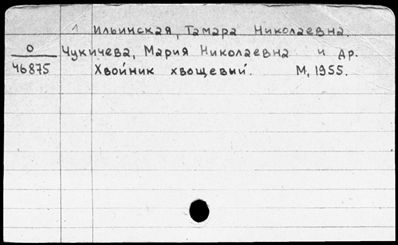 1 Ильинская, Тамара Николаевна.
О Чукичева, Мария Николаевна и др.
46875 Хвойник хвощевый. М, 1955.